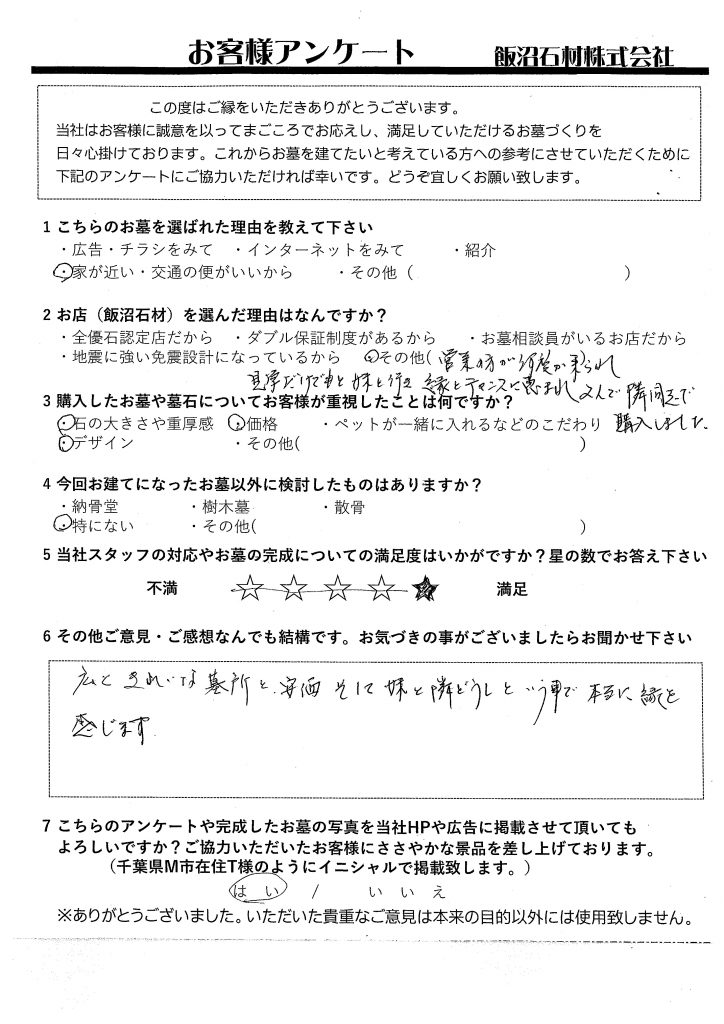 お客様アンケート　飯沼石材株式会社
この度はご縁をいただきありがとうございます。
当社はお客様に誠意を以ってまごころでお応えし、満足していただけるお墓づくりを
日々心掛けております。これからお墓を建てたいと考えている方への参考にさせていただくために
下記のアンケートにご協力いただければ幸いです。どうぞ宜しくお願い致します。
1 こちらのお墓を選ばれた理由を教えて下さい
・広告・チラシをみて　・インターネットをみて　・紹介
・家が近い・交通の便がいいから　・その他（　）
2 お店（飯沼石材）を選んだ理由はなんですか？
・全優石認定店だから　・ダブル保証制度があるから　・お墓相談員がいるお店だから
・地震に強い免震設計になっているから　・その他( 営業の方が何度か来られ
見学だけでもと 妹と行き 縁とチャンスに恵まれ 2人で隣同志で
3 購入したお墓や墓石についてお客様が重視したことは何ですか？
・石の大きさや重厚感　・価格　・ペットが一緒に入れるなどのこだわり　購入しました。
・デザイン　・その他(　)
4 今回お建てになったお墓以外に検討したものはありますか？
・納骨堂　・樹木墓　・散骨
・特にない　・その他(　)
5 当社スタッフの対応やお墓の完成についての満足度はいかがですか？星の数でお答え下さい
不満　☆ ☆ ☆ ☆ ★　満足
6 その他ご意見・ご感想なんでも結構です。お気づきの事がございましたらお聞かせ下さい
広く きれいな 墓所と、安価 そして 妹と隣どうしという事で 本当に縁を
感じます
7 こちらのアンケートや完成したお墓の写真を当社HPや広告に掲載させて頂いても
よろしいですか？ご協力いただいたお客様にささやかな景品を差し上げております。
（千葉県M市在住T様のようにイニシャルで掲載致します。）
はい　/　いいえ
※ありがとうございました。いただいた貴重なご意見は本来の目的以外には使用致しません。